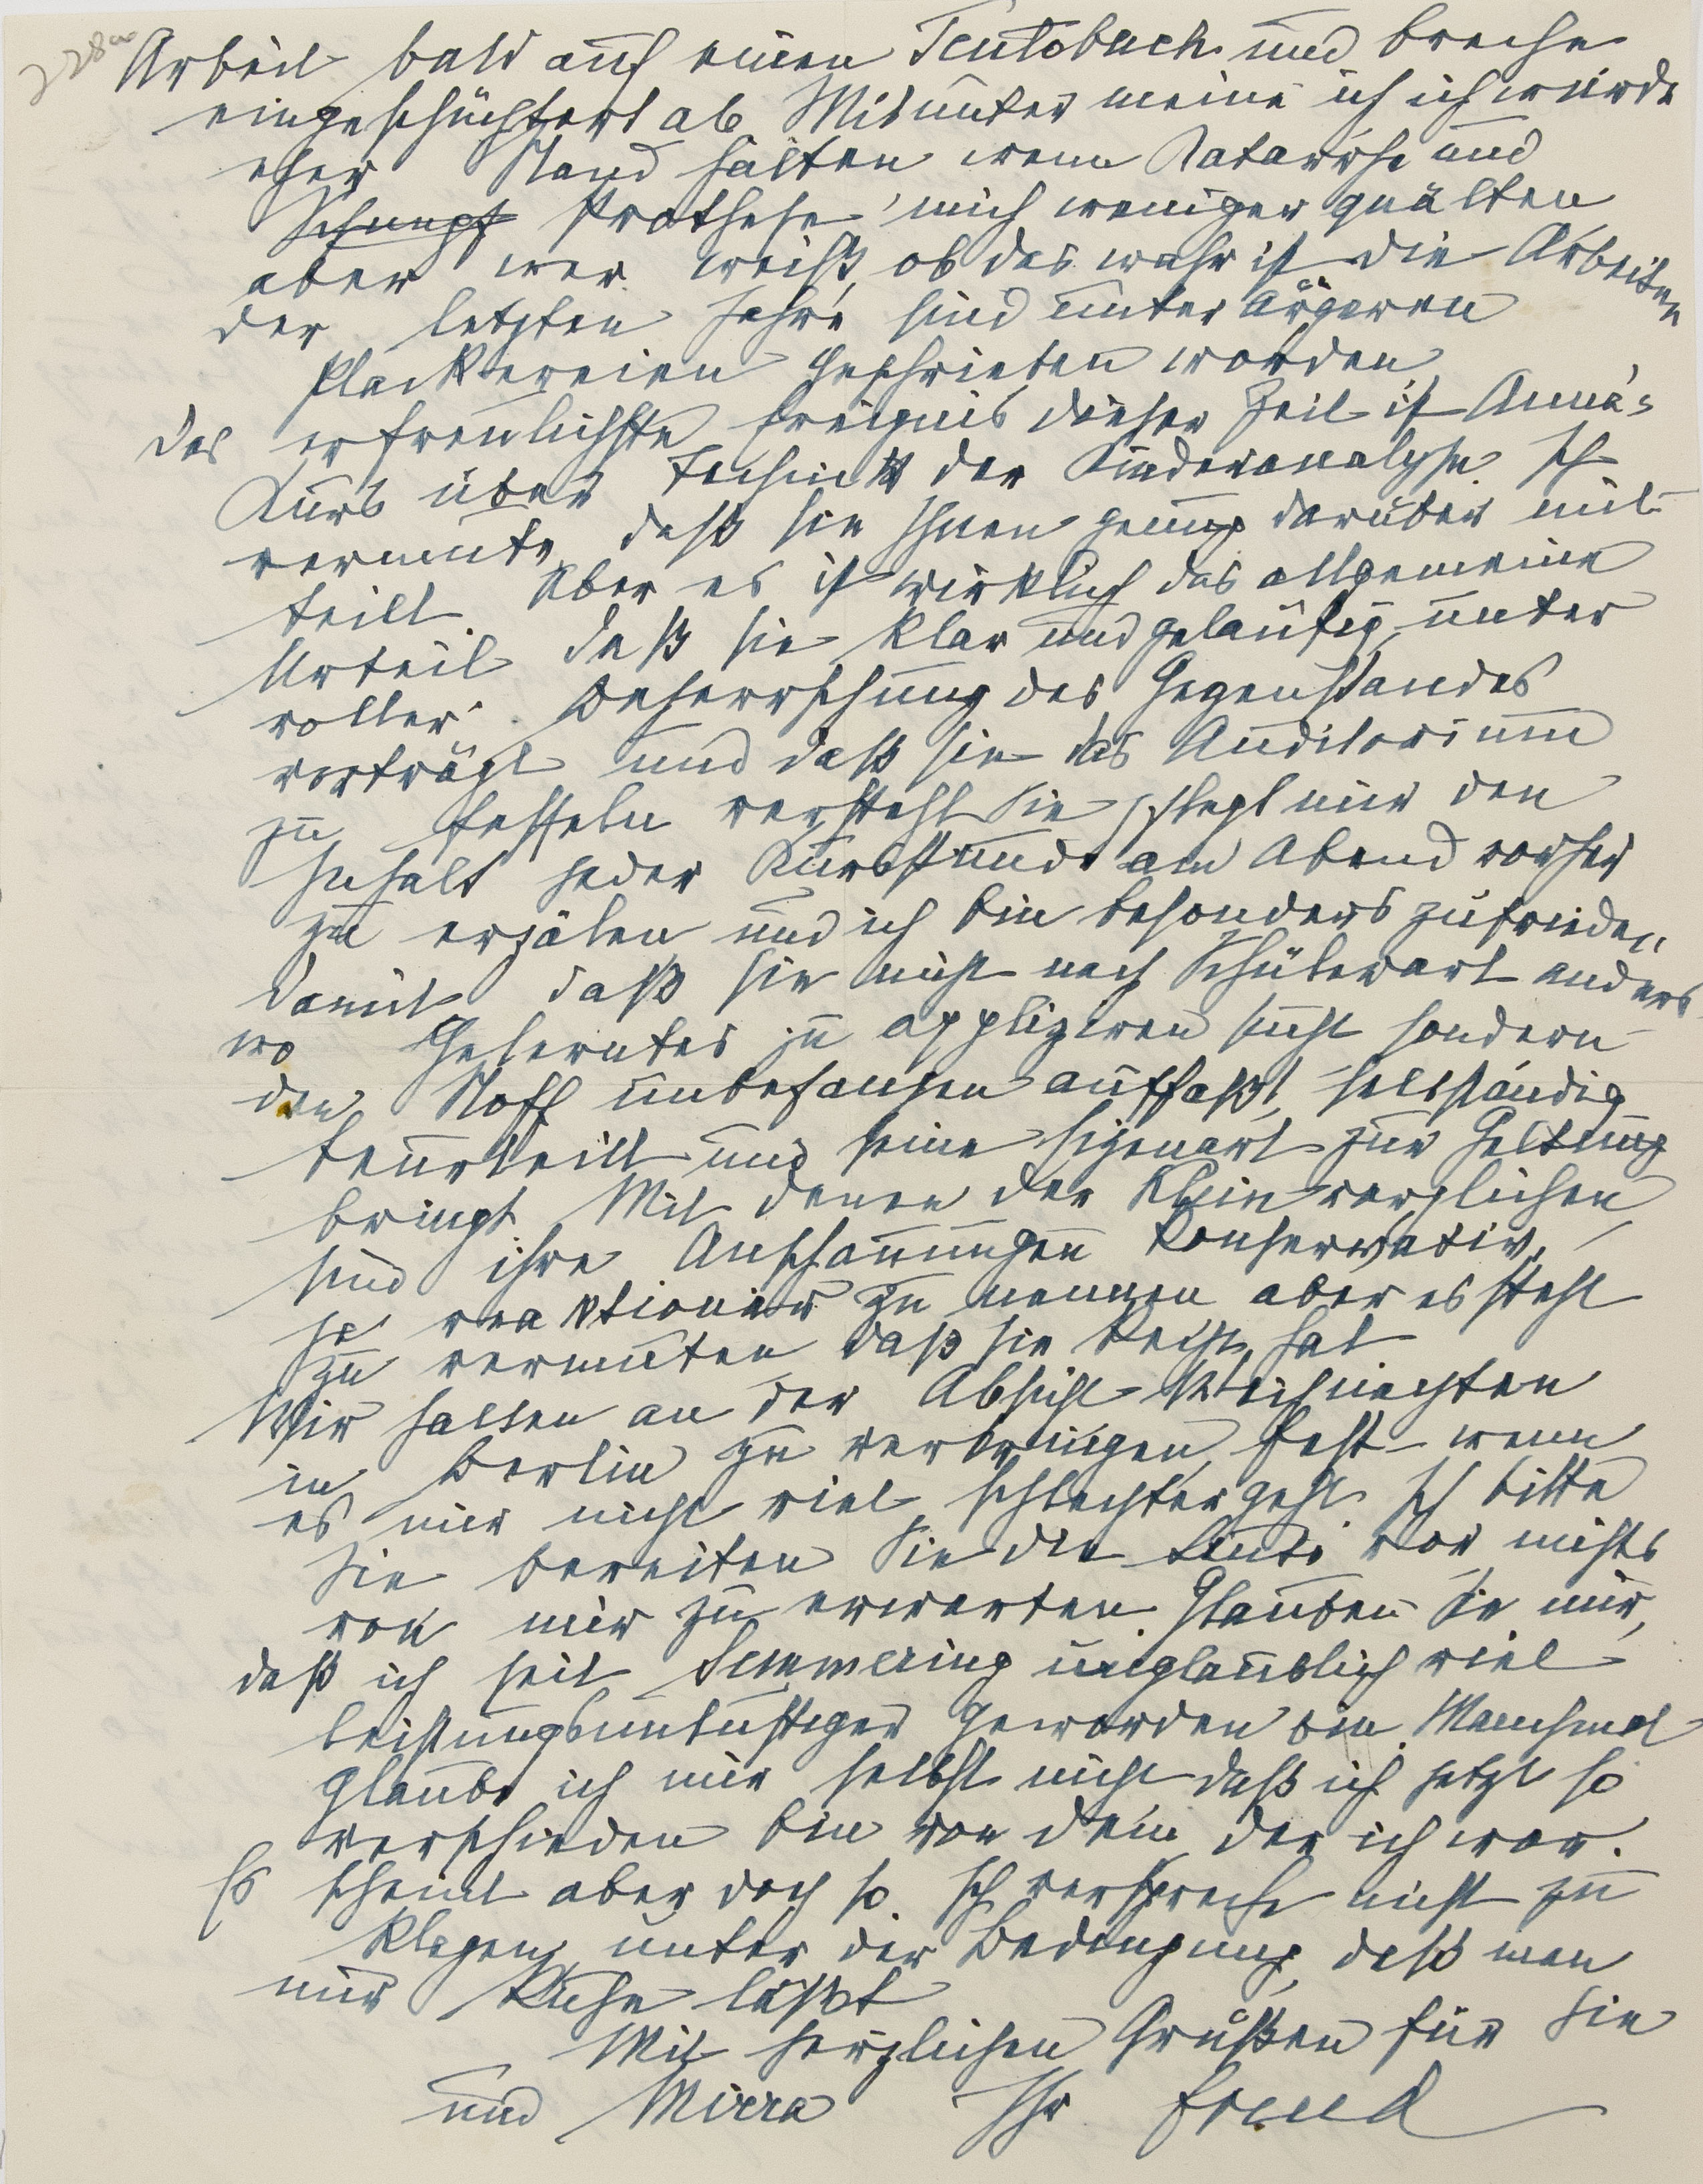 Arbeit bald auf einen Teutobach und breche
eingeschüchtert ab. Mitunter meine ich ich würde
eher Stand halten wenn Katarrhe und
Schnupf Prothese mich weniger quälten
aber wer weiß, ob das wahr ist die Arbeiten
der letzten Jahre sind unter ärgeren
Plackereien geschrieben worden
Das erfreulichste Ereignis dieser Zeit ist Anna's
Kurs über Technik der Kinderanalyse. Ich
vermute, daß sie Ihnen genug darüber mit-
teilt. Aber es ist wirklich das allgemeine
Urteil daß sie klar und geläufig, unter
voller Beherrschung des Gegenstandes
vorträgt und daß sie das Auditorium
zu fesseln versteht. Sie pflegt mir den
Inhalt jeder Kursstunde am Abend vorher
zu erzälen und ich bin besonders zufrieden
damit daß sie nicht nach Schülerart anders-
wo Gelerntes zu appliziren sucht sondern
den Stoff unbefangen auffaßt, selbständig
beurteilt und seine Eigenart zur Geltung
bringt. Mit denen der Klein verglichen
sind ihre Anschauungen konservativ,
ja reaktionär zu nennen aber es steht
zu vermuten daß sie Recht hat
Wir halten an der Absicht Weihnachten
in Berlin zu verbringen, fest – wenn
es mir nicht viel schlechter geht. Ich bitte
Sie bereiten Sie die Leute vor nichts
von mir zu erwarten. Glauben Sie mir,
daß ich seit Semmering unglaublich viel
leistungsunlustiger geworden bin. Manchmal
glaube ich mir selbst nicht daß ich jetzt so
verschieden bin von dem der ich war.
Es scheint aber doch so. Ich verspreche nicht zu
klagen, unter der Bedingung, daß man
mir Ruhe läßt
Mit herzlichen Grüßen für Sie
und Mirra Ihr Freud